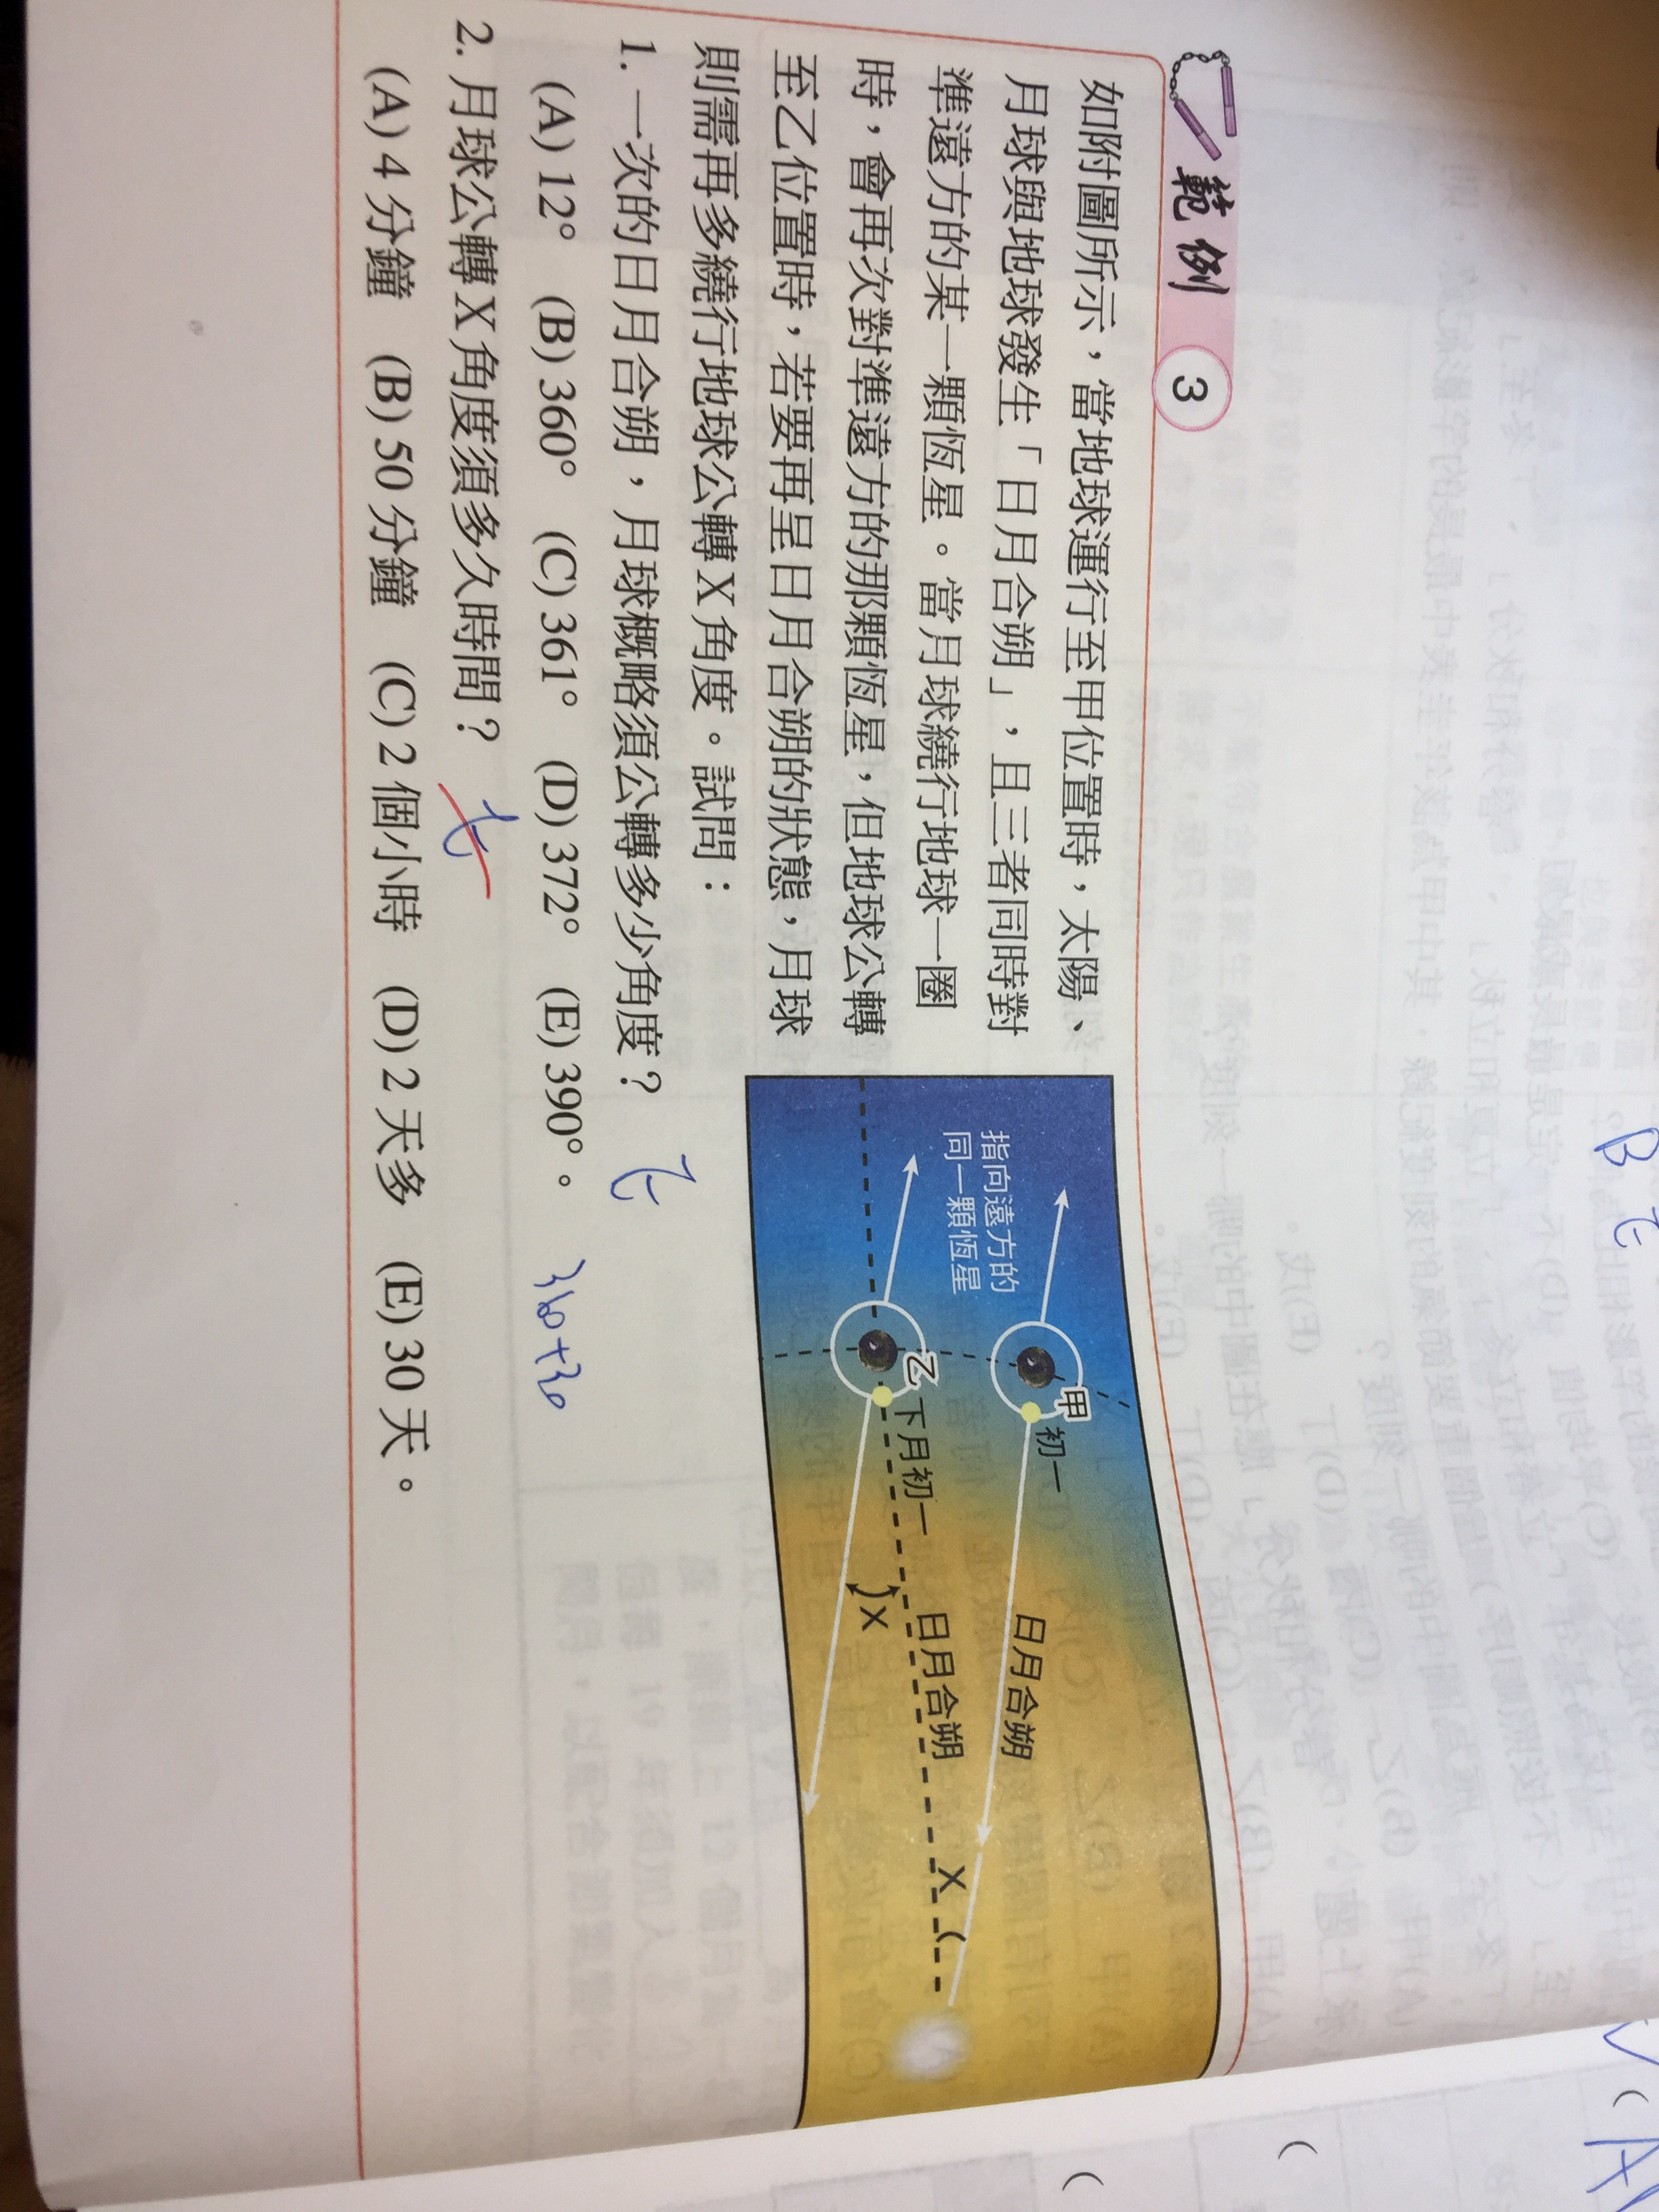 範例 3
如附圖所示，當地球運行至甲位置時，太陽、
月球與地球發生「日月合朔」，且三者同時對
準遠方的某一顆恆星。當月球繞行地球一圈
時，會再次對準遠方的那顆恆星，但地球公轉
至乙位置時，若要再呈日月合朔的狀態，月球
則需再多繞行地球公轉 X 角度。試問：
1. 一次的日月合朔，月球概略須公轉多少角度？
(A) 12° (B) 360° (C) 361° (D) 372° (E) 390°。 360+30
2. 月球公轉 X 角度須多久時間？
(A) 4 分鐘 (B) 50 分鐘 (C) 2 個小時 (D) 2 天多 (E) 30 天。
指向遠方的
同一顆恆星
甲
初一
日月合朔
乙
下月初一
日月合朔
X
X
B